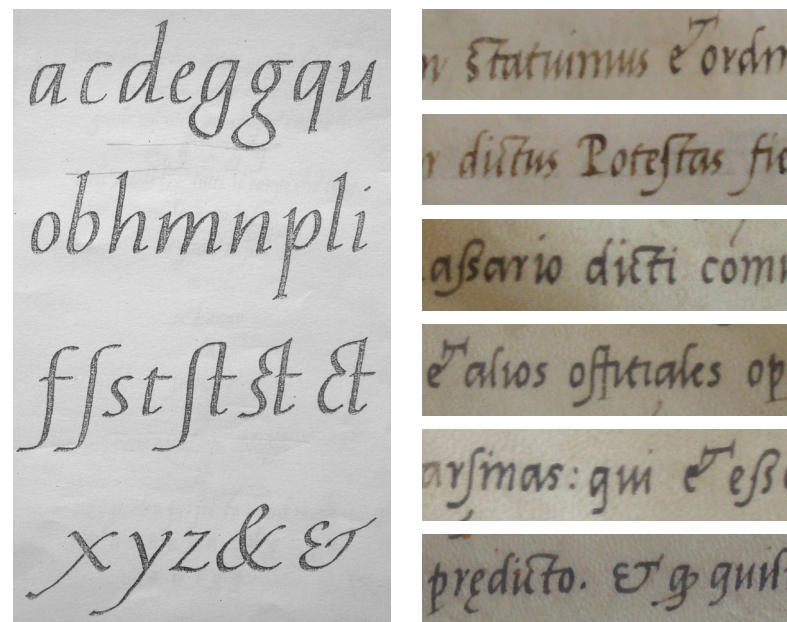 a c d e g g q u
o b h m n p l i
f ſ s t ſt st ct
x y z & &
ſtatuimus et ordin
r dictus Poteſtas fie
aſsario dicti com
et alios offitiales op
arſinas: qui et eſs
prędicto. &